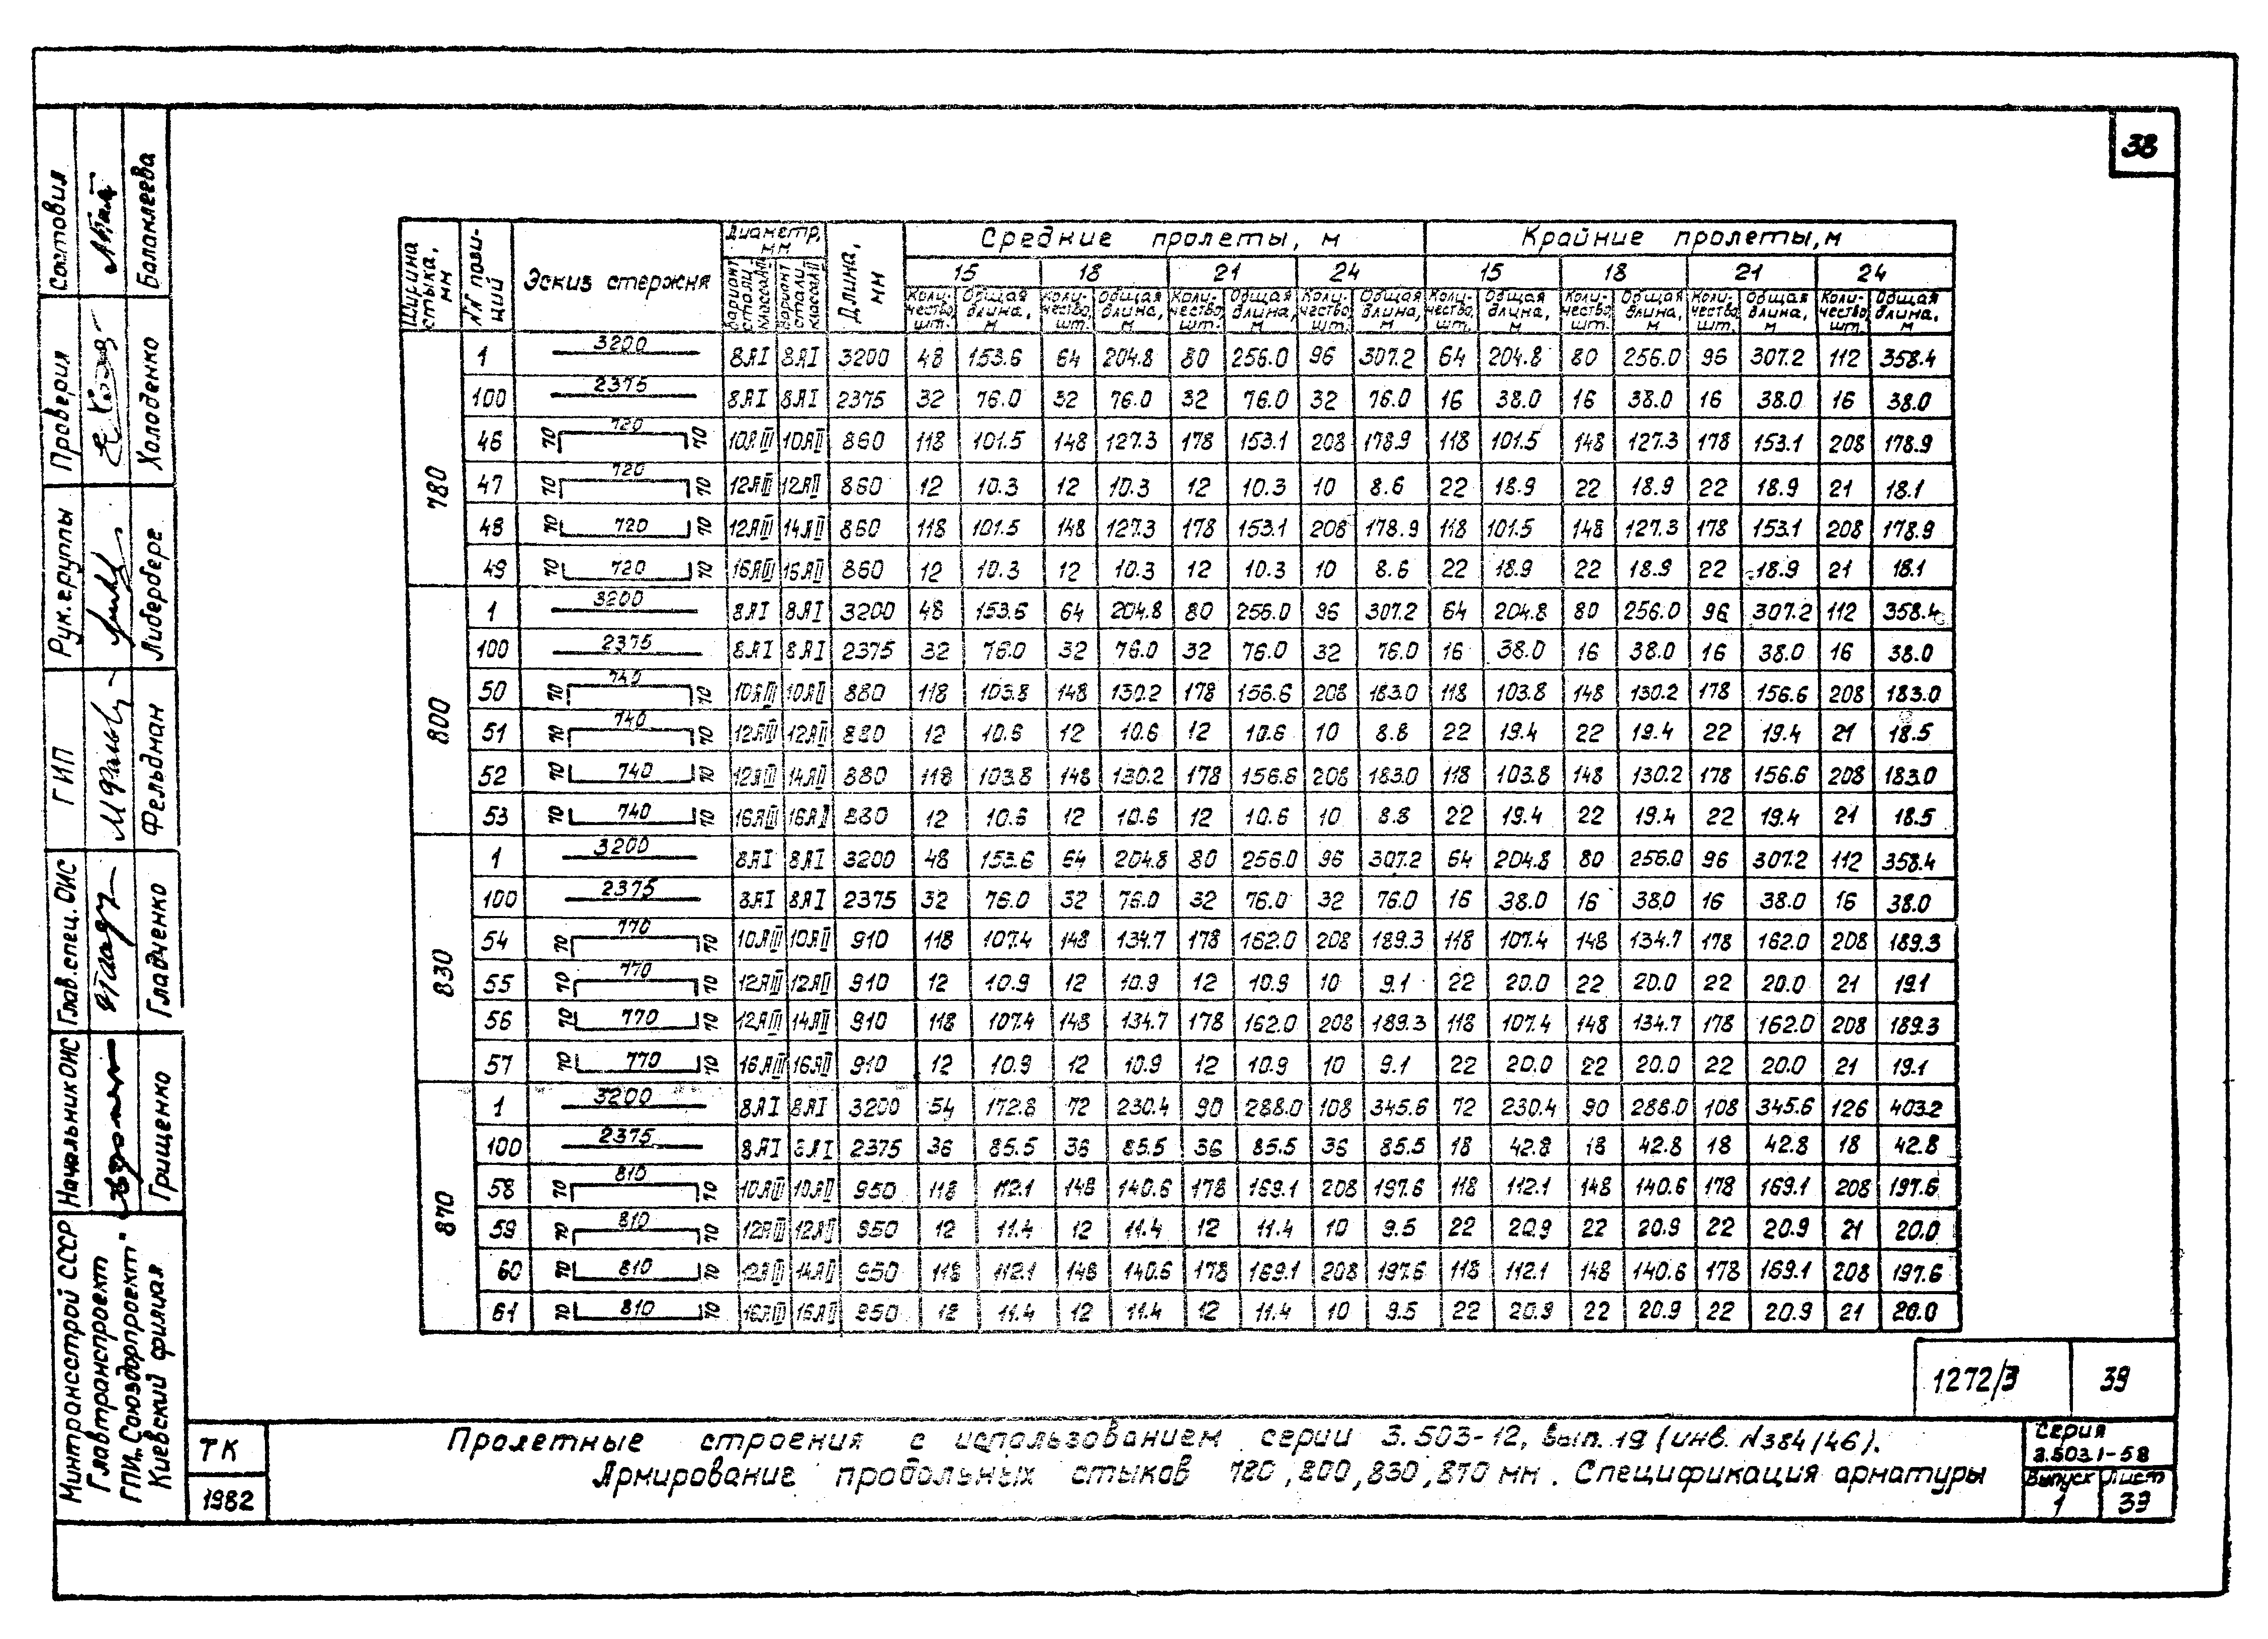 38
Ширина стыка, мм
NN позиций
Эскиз стержня
Диаметр, мм
Вариант стали класса АIII
Вариант стали класса АII
Длина, мм
Средние пролеты, м
Крайние пролеты, м
15 18 21 24 15 18 21 24
Количество, шт. Общая длина, м Количество, шт. Общая длина, м Количество, шт. Общая длина, м Количество, шт. Общая длина, м Количество, шт. Общая длина, м Количество, шт. Общая длина, м Количество, шт. Общая длина, м Количество, шт. Общая длина, м
780
1 3200 8АI 8АI 3200 48 153.6 64 204.8 80 256.0 96 307.2 64 204.8 80 256.0 96 307.2 112 358.4
100 2375 8АI 8АI 2375 32 76.0 32 76.0 32 76.0 32 76.0 16 38.0 16 38.0 16 38.0 16 38.0
46 70 720 70 10АIII 10АII 860 118 101.5 148 127.3 178 153.1 208 178.9 118 101.5 148 127.3 178 153.1 208 178.9
47 70 720 70 12АIII 12АII 860 12 10.3 12 10.3 12 10.3 10 8.6 22 18.9 22 18.9 22 18.9 21 18.1
48 70 720 70 12АIII 14АII 860 118 101.5 148 127.3 178 153.1 208 178.9 118 101.5 148 127.3 178 153.1 208 178.9
49 70 720 70 16АIII 16АII 860 12 10.3 12 10.3 12 10.3 10 8.6 22 18.9 22 18.9 22 18.9 21 18.1
800
1 3200 8АI 8АI 3200 48 153.6 64 204.8 80 256.0 96 307.2 64 204.8 80 256.0 96 307.2 112 358.4
100 2375 8АI 8АI 2375 32 76.0 32 76.0 32 76.0 32 76.0 16 38.0 16 38.0 16 38.0 16 38.0
50 70 740 70 10АIII 10АII 880 118 103.8 148 130.2 178 156.6 208 183.0 118 103.8 148 130.2 178 156.6 208 183.0
51 70 740 70 12АIII 12АII 880 12 10.6 12 10.6 12 10.6 10 8.8 22 19.4 22 19.4 22 19.4 21 18.5
52 70 740 70 12АIII 14АII 880 118 103.8 148 130.2 178 156.6 208 183.0 118 103.8 148 130.2 178 156.6 208 183.0
53 70 740 70 16АIII 16АII 880 12 10.6 12 10.6 12 10.6 10 8.8 22 19.4 22 19.4 22 19.4 21 18.5
830
1 3200 8АI 8АI 3200 48 153.6 64 204.8 80 256.0 96 307.2 64 204.8 80 256.0 96 307.2 112 358.4
100 2375 8АI 8АI 2375 32 76.0 32 76.0 32 76.0 32 76.0 16 38.0 16 38.0 16 38.0 16 38.0
54 70 770 70 10АIII 10АII 910 118 107.4 148 134.7 178 162.0 208 189.3 118 107.4 148 134.7 178 162.0 208 189.3
55 70 770 70 12АIII 12АII 910 12 10.9 12 10.9 12 10.9 10 9.1 22 20.0 22 20.0 22 20.0 21 19.1
56 70 770 70 12АIII 14АII 910 118 107.4 148 134.7 178 162.0 208 189.3 118 107.4 148 134.7 178 162.0 208 189.3
57 70 770 70 16АIII 16АII 910 12 10.9 12 10.9 12 10.9 10 9.1 22 20.0 22 20.0 22 20.0 21 19.1
870
1 3200 8АI 8АI 3200 54 172.8 72 230.4 90 288.0 108 345.6 72 230.4 90 288.0 108 345.6 126 403.2
100 2375 8АI 8АI 2375 36 85.5 36 85.5 36 85.5 36 85.5 18 42.8 18 42.8 18 42.8 18 42.8
58 70 810 70 10АIII 10АII 950 118 112.1 148 140.6 178 169.1 208 197.6 118 112.1 148 140.6 178 169.1 208 197.6
59 70 810 70 12АIII 12АII 950 12 11.4 12 11.4 12 11.4 10 9.5 22 20.9 22 20.9 22 20.9 21 20.0
60 70 810 70 12АIII 14АII 950 118 112.1 148 140.6 178 169.1 208 197.6 118 112.1 148 140.6 178 169.1 208 197.6
61 70 810 70 16АIII 16АII 950 12 11.4 12 11.4 12 11.4 10 9.5 22 20.9 22 20.9 22 20.9 21 20.0
1272/3 39
ТК
1982
Пролетные строения с использованием серии 3.503-12, вып. 19 (инв. N384/46).
Армирование продольных стыков 780, 800, 830, 870 мм. Спецификация арматуры
Серия
3.503.1-58
Выпуск Лист
1 39
Составил Балаклеева
Проверил Холоденко
Рук. группы Либерберг
ГИП Фельдман
Глав. спец. ОИС Гладченко
Начальник ОИС Грищенко
Минтрансстрой СССР
Главтранспроект
ГПИ „Союздорпроект"
Киевский филиал